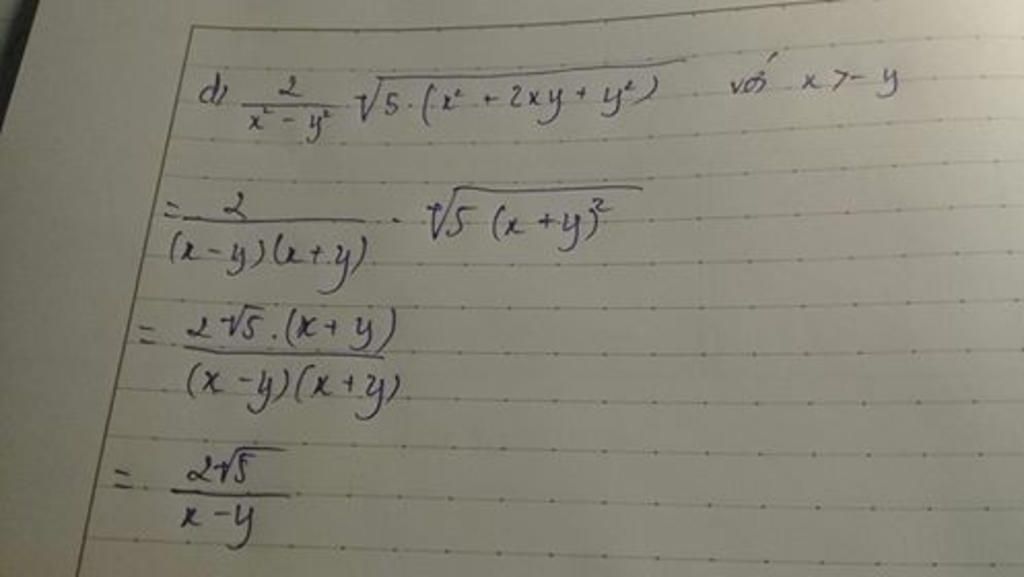 d) 2/(x² - y²) √(5.(x² + 2xy + y²)) với x > - y
= 2/((x-y)(x+y)) . √(5 (x+y)²)
= 2√5.(x+y)/((x-y)(x+y))
= 2√5/(x-y)